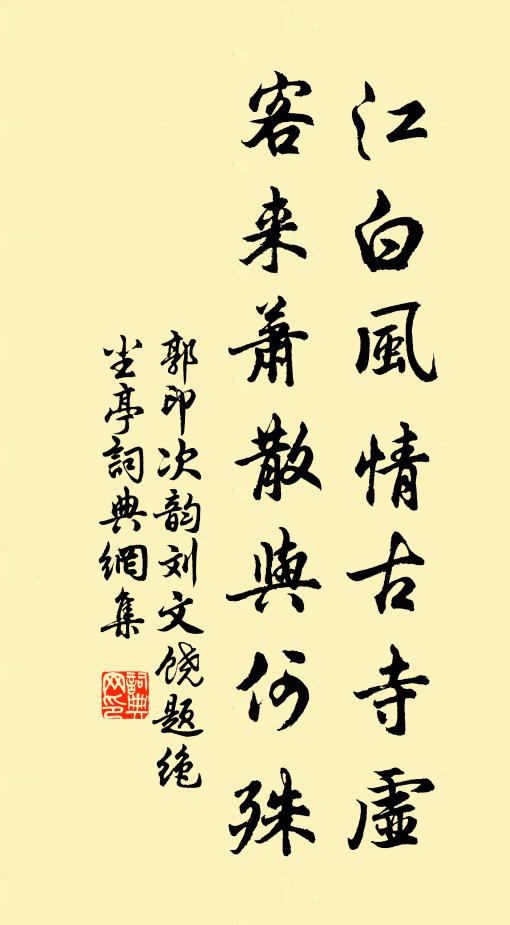 江白風情古寺虛
客来蕭散與何殊
郭印次韵刘文饶题绝
尘亭詞典網集
詞典
网印